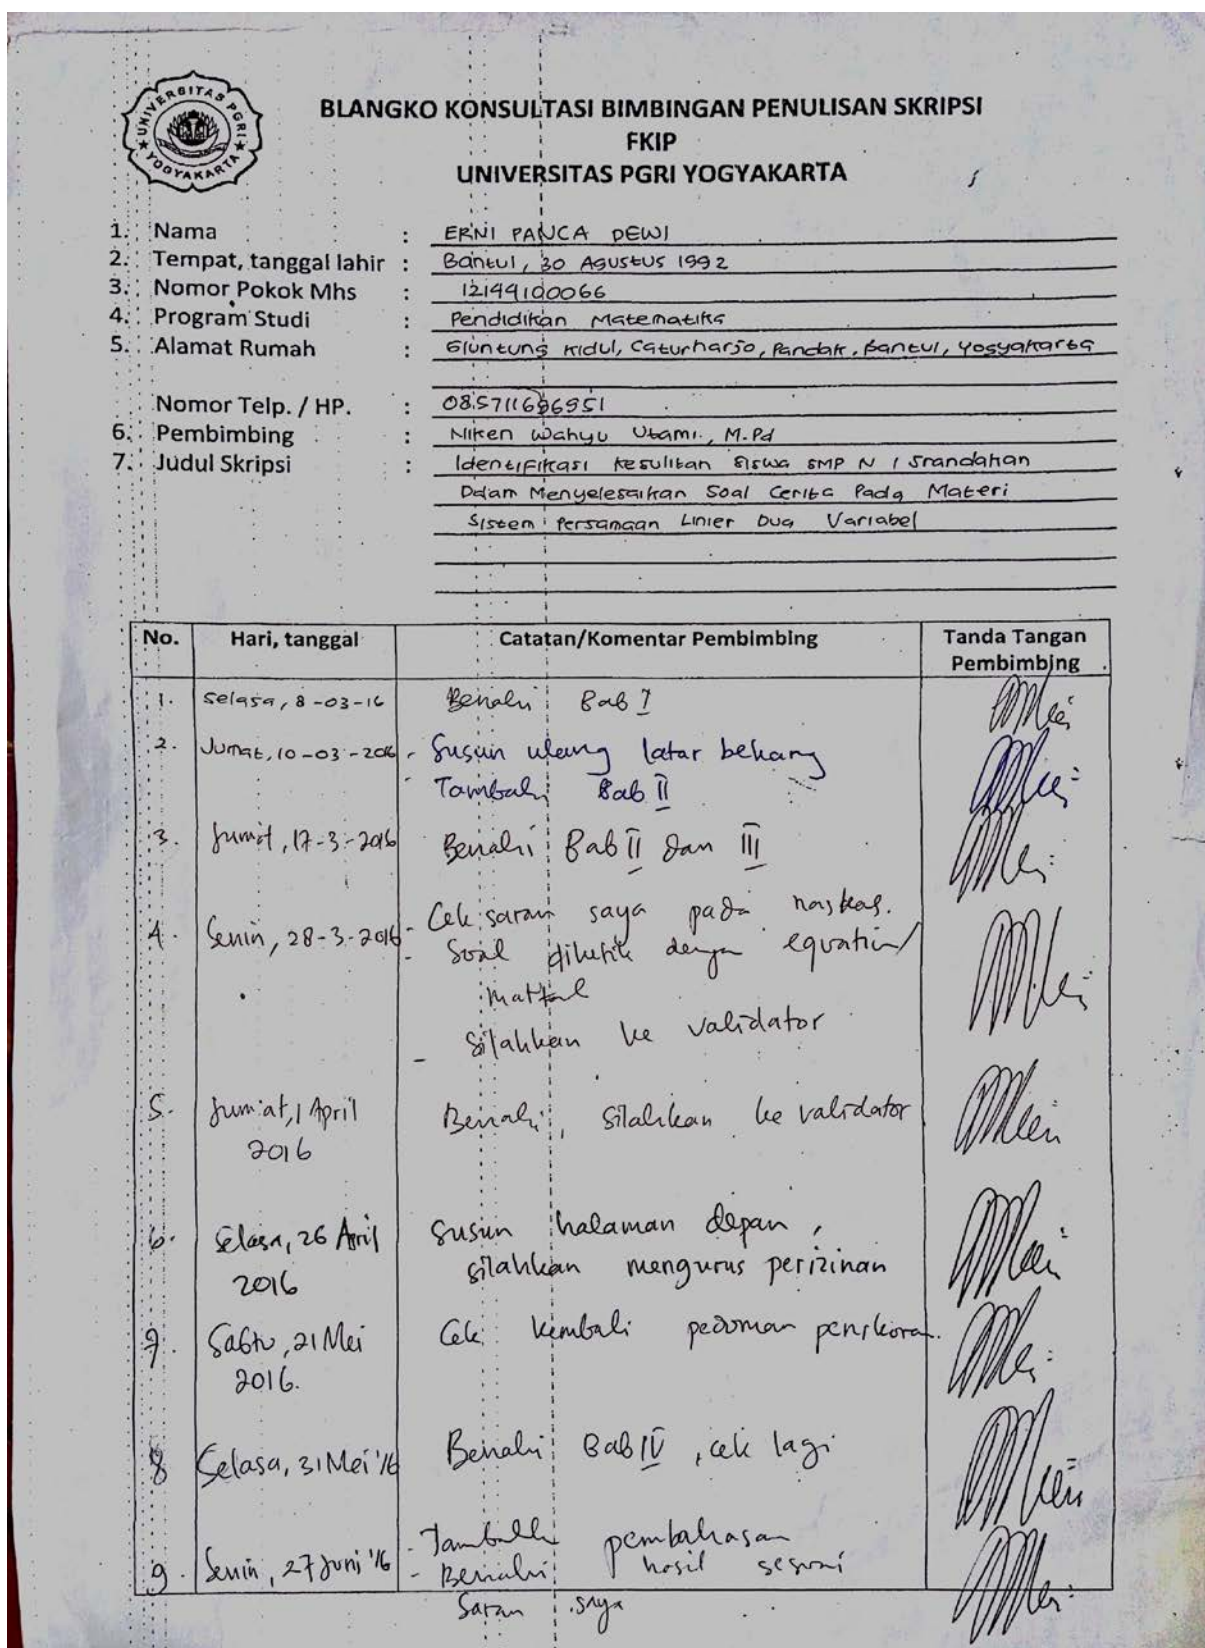 UNIVERSITAS PGRI
YOGYAKARTA
BLANGKO KONSULTASI BIMBINGAN PENULISAN SKRIPSI
FKIP
UNIVERSITAS PGRI YOGYAKARTA
1. Nama : ERNI PANCA DEWI
2. Tempat, tanggal lahir : Bantul, 30 Agustus 1992
3. Nomor Pokok Mhs : 12144100066
4. Program Studi : Pendidikan Matematika
5. Alamat Rumah : Gluntung Kidul, Caturharjo, Pandak, Bantul, Yogyakarta
Nomor Telp. / HP. : 085711696951
6. Pembimbing : Niken Wahyu Utami., M.Pd
7. Judul Skripsi : Identifikasi Kesulitan Siswa SMP N 1 Srandakan
Dalam Menyelesaikan Soal Cerita Pada Materi
Sistem Persamaan Linier Dua Variabel
No. Hari, tanggal Catatan/Komentar Pembimbing Tanda Tangan
Pembimbing
1. Selasa, 8-03-16 Benahi Bab I
2. Jumat, 10-03-2016 - Susun ulang latar belakang
- Tambahi Bab II
3. Jumat, 17-3-2016 Benahi Bab II dan III
4. Senin, 28-3-2016 - Cek saran saya pada naskah.
- Soal diketik dengan equation/
- Silahkan ke validator
5. Jum'at, 1 April Benahi, silahkan ke validator
2016
6. Selasa, 26 April Susun halaman depan,
2016 silahkan mengurus perizinan
7. Sabtu, 21 Mei Cek kembali pedoman penskoran.
2016.
8 Selasa, 31 Mei '16 Benahi Bab IV, cek lagi
9. Senin, 27 Juni '16 - Tambahi pembahasan
- Benahi hasil sesuai
saran saya